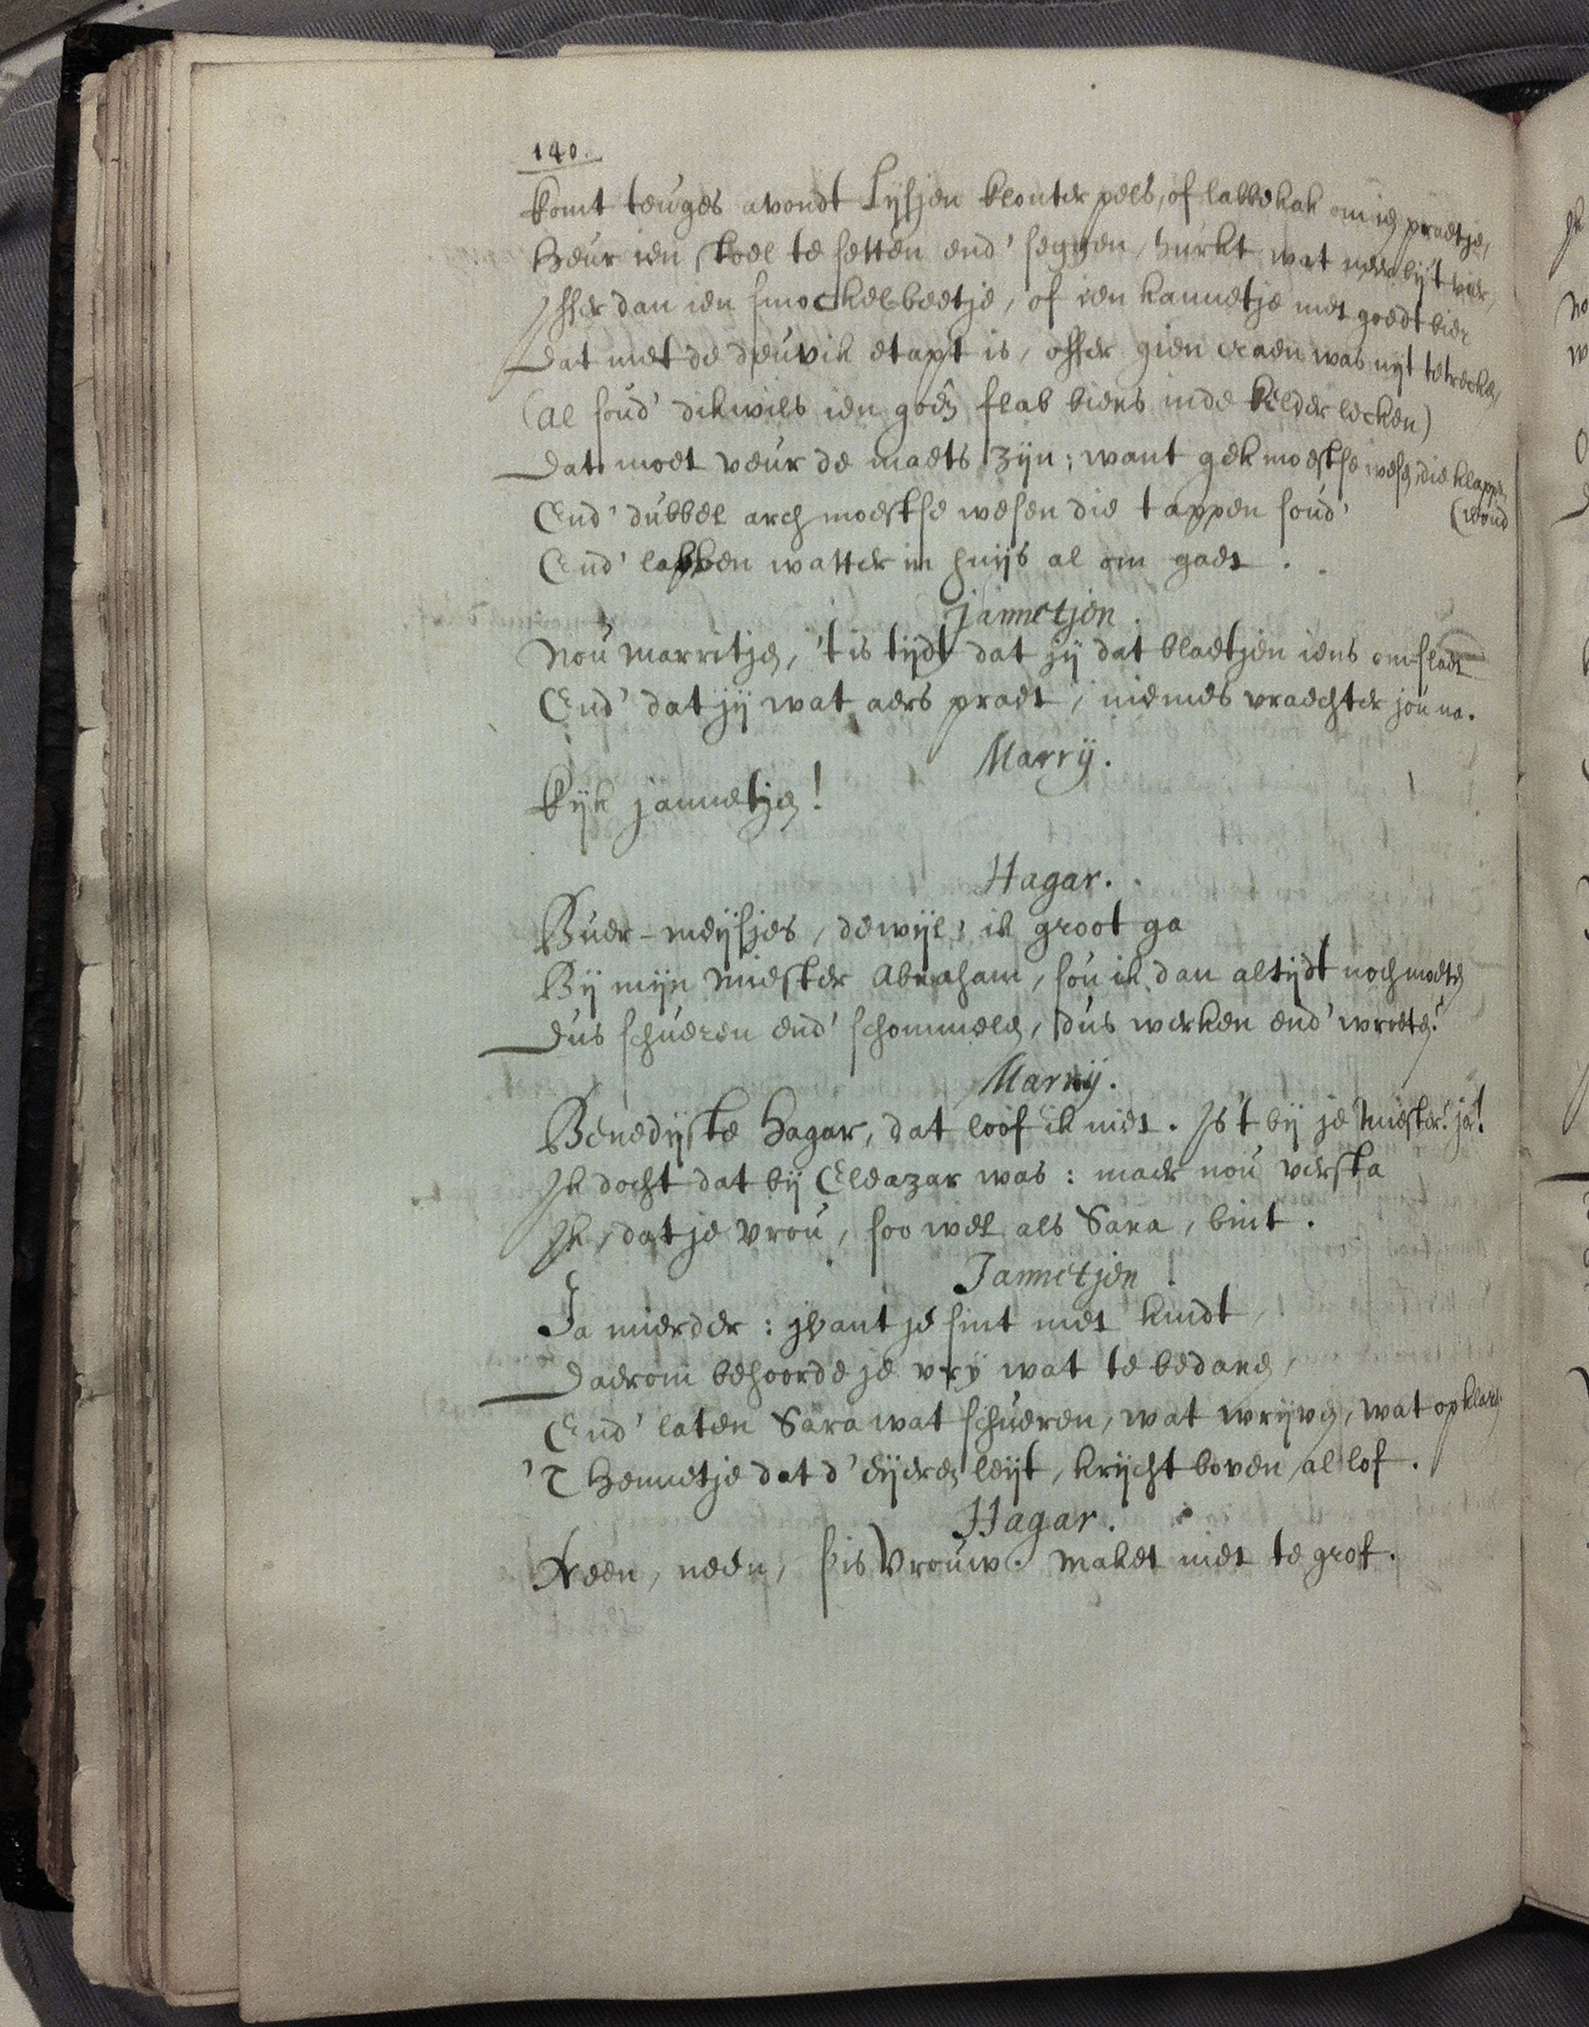 140.
komt teuges avondt Lijsjen klonter pels, of labbekak om ien praetje,
Heur ien stoel te setten end' seggen, hurkt wat neer by 't vier,
Isser dan ien smockelbeetje, of ien kannetje met goedt bier
Dat met de deuvik etapt is, offer gien craen was uyt te trecken,
(Al soud' dikwils ien goên slab biers inde kelder lecken)
Dat moet veur de maets zijn; want gek moestse wesen, die klappen
(woud
End' dubbel arch moestse wesen die tappen soud'
End' labben watter in huijs al om gaet.
Jannetjen.
Nou Marritjen, 't is tijdt dat jij dat blaetjen iens omslaet
End' dat jij wat aers praet, niemes vraechter jou na.
Marrij.
Kijk jannetjen!
Hagar.
Buer-meijsjes, dewijl ik groot ga
Bij mijn Miester Abraham, sou ik dan altijdt noch moeten
Dus schueren end' schommelen, dus werken end' wroeten?
Marrij.
Benedijste Hagar, dat loof ik niet. Is 't bij je Miester? ja!
Ik docht dat bij Eleazar was: maer nou versta
Ik, dat je vrou, soo wel als Sara, bint.
Jannetjen
Ja mierder: want je sint met kindt,
Daerom behoorde je vry wat te bedaren,
End' laten Sara wat schueren, wat wrijven, wat opklaren.
'T Hennetje dat d' eijeren leijt, krijcht boven al lof.
Hagar.
Neen, neen, sis Vrouw. Maket niet te grof.